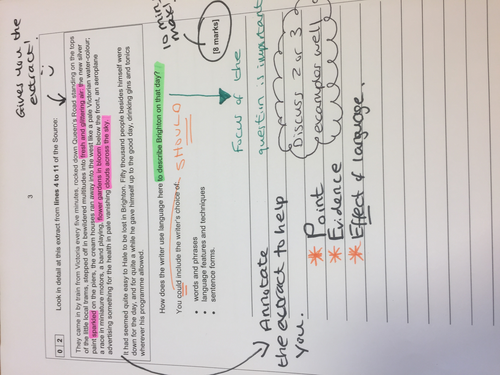 Gives you the
extract!
3
0 2
Look in detail at this extract from lines 4 to 11 of the Source:
They came in by train from Victoria every five minutes, rocked down Queen's Road standing on the tops
of the little local trams, stepped off in bewildered multitudes into fresh and glittering air: the new silver
paint sparkled on the piers, the cream houses ran away into the west like a pale Victorian water-colour;
a race in miniature motors, a band playing, flower gardens in bloom below the front, an aeroplane
advertising something for the health in pale vanishing clouds across the sky.
It had seemed quite easy to Hale to be lost in Brighton. Fifty thousand people besides himself were
down for the day, and for quite a while he gave himself up to the good day, drinking gins and tonics
wherever his programme allowed.
10 mins
max!
How does the writer use language here to describe Brighton on that day?
SHOULD
You could include the writer's choice of:
• words and phrases
• language features and techniques
• sentence forms.
[8 marks]
Focus of the
question is important
Annotate
the extract to help
you.
Discuss 2 or 3
examples well
* Point
* Evidence
* Effect of language